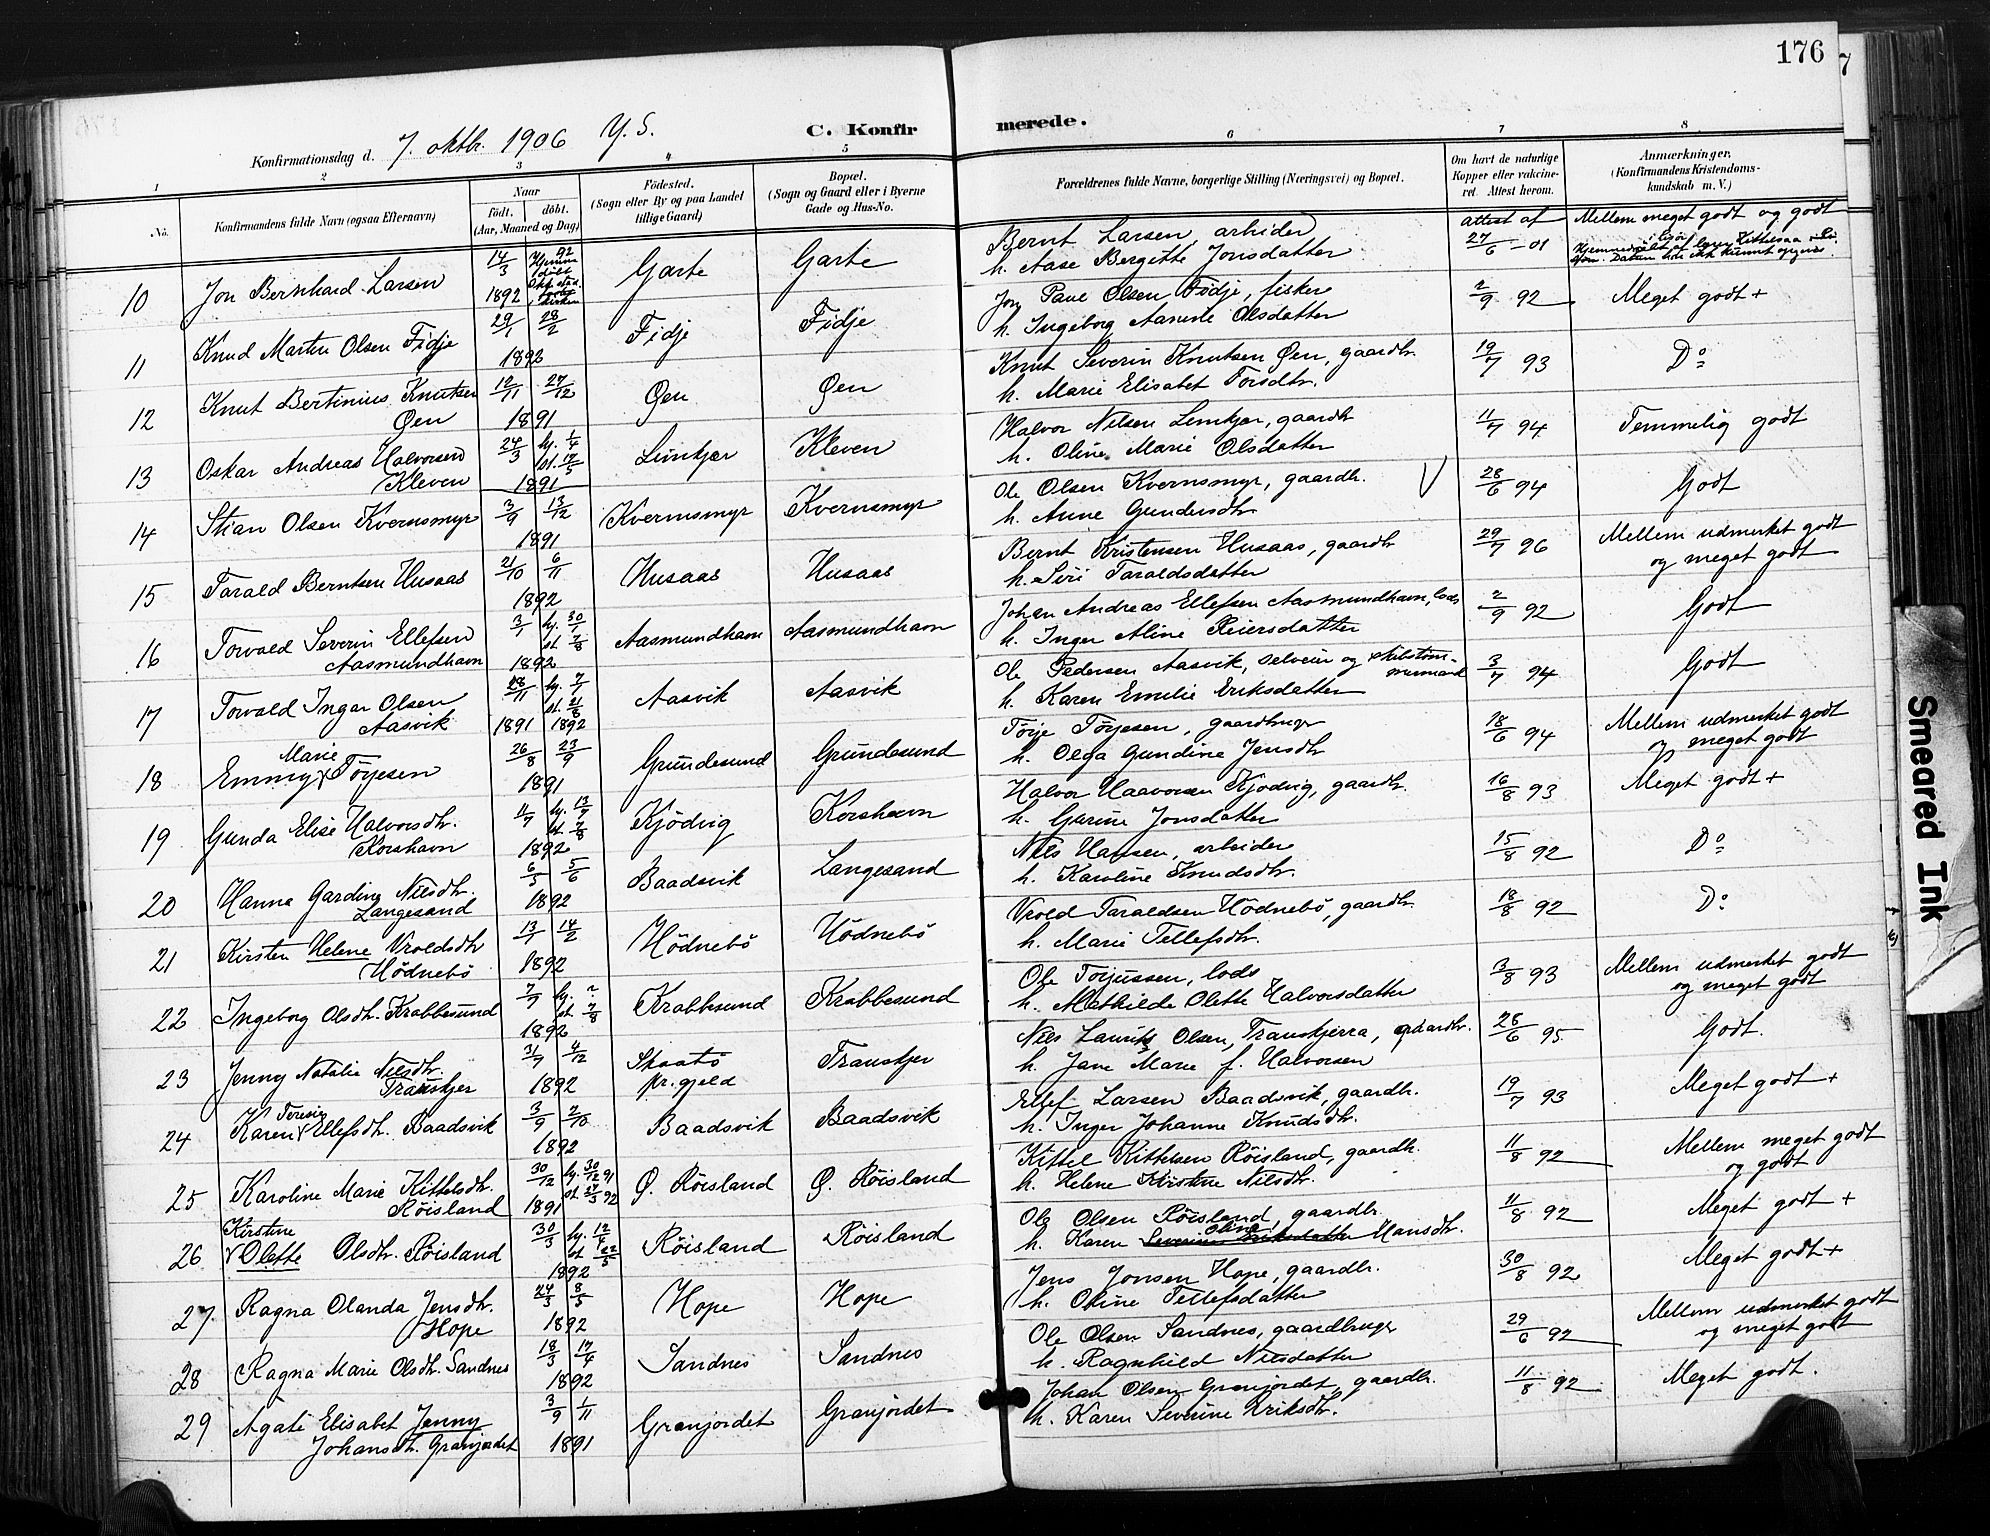 176
7
C. Konfir merede.
Konfirmationsdag d. 7. oktbr. 1906 Y. S.
1 2 3 4 5 6 7 8
No.
Konfirmandens fulde Navn (ogsaa Efternavn)
Naar
födt. döbt.
(Aar, Maaned og Dag)
Födested.
(Sogn eller By og paa Landet
tillige Gaard)
Bopæl.
(Sogn og Gaard eller i Byerne
Gade og Hus-No.
Forældrenes fulde Navne, borgerlige Stilling (Næringsvei) og Bopæl.
Om havt de naturlige
Kopper eller vakcine-
ret. Attest herom.
Anmærkninger,
(Konfirmandens Kristendoms-
kundskab m. V.)
10 Jon Bernhard Larsen 14/3 1892 Garte Garte
Bernt Larsen, arbeider
h. Aase Bergitte Jonsdatter
attest af 27/6 -01
Mellem meget godt og godt
11 Knud Martin Olsen Fidje 29/1 28/2 1892 Fidje Fidje
Paul Olsen Fidje, fisker
h. Ingeborg Aamine Olsdatter
2/9 92 Meget godt +
12 Knut Bertinius Knutsen
Øen
12/11 27/12 1891 Øen Øen
Knut Severin Knutsen Øen, gaardbr.
h. Marie Elisabet Torsdtr.
19/7 93 Do
13 Oskar Andreas Halvorsen
Kleven
24/3 hj. 1/4 st. 17/5 1891 Limkjær Kleven
Halvor Nilsen Limkjær, gaardbr
h. Oline Marie Olsdatter
11/7 94 Temmelig godt
14 Stian Olsen Kvernsmyr 3/9 13/12 1891 Kvernsmyr Kvernsmyr
Ole Olsen Kvernsmyr, gaardbr. V
h. Anne Gundersdtr.
28/6 94 Godt
15 Tarald Berntsen Husaas 21/10 6/11 1892 Husaas Husaas
Bernt Kristensen Husaas, gaardbr
h. Siri Taraldsdatter
29/7 96 Mellem udmerket godt
og meget godt
16 Torvald Severin Ellefsen
Aasmundhavn
3/1 hj. 30/1 st. 7/8 1892 Aasmundhavn Aasmundhavn
Johan Andreas Ellefsen Aasmundhavn, lods
h. Inger Aline Reiersdatter
2/9 92 Godt
17 Torvald Ingar Olsen
Aasvik
28/11 hj. 7/1 st. 21/8 1891 1892 Aasvik Aasvik
Ole Pedersen Aasvik, selveier og skibstøm-
mermand
h. Karen Emilie Eriksdatter
3/7 94 Godt
18 Emmy Marie Tørjesen 26/8 23/9 1891 Grundesund Grundesund
Tørje Tørjesen, gaardbruger
h. Olga Gundine Jensdtr
18/6 94 Mellem udmerket godt
og meget godt
19 Gunda Elise Halvorsdtr.
Korshavn
11/7 hj. 13/7 st. 7/8 1892 Kjödvig Korshavn
Halvor Haavorsen Kjødvig, gaardbr.
h. Gurine Jonsdatter
16/8 93 Meget godt +
20 Hanna Gardine Nilsdtr.
Langesand
6/3 5/6 1892 Baadsvik Langesand
Nils Hansen, arbeider
h. Karoline Knudsdtr.
15/8 92 Do
21 Kirsten Helene Vroldsdtr
Hödnebö
13/1 14/2 1892 Hödnebö Hödnebö
Vrold Taraldsen Hödnebö, gaardbr.
h. Marie Tellefsdtr.
18/8 92 Do
22 Ingeborg Olsdtr. Krabbesund 7/7 1892 Krabbesund Krabbesund
Ole Torjussen, lods
h. Mathilde Olette Halvorsdatter
3/8 93 Mellem udmerket godt
og meget godt
23 Jenny Natalie Nilsdtr.
Transkjer
31/7 4/12 1892 Skaatö
pr. gjeld
Transkjer
Nils Laurits Olsen, Transkjerra, gaardbr.
h. Jane Marie f. Halvorsen
28/6 95. Godt.
24 Karen Teresie Ellefsdtr. Baadsvik 3/9 2/10 1892 Baadsvik Baadsvik
Ellef Larsen Baadsvik, gaardbr.
h. Inger Johanne Knudsdtr.
19/7 93 Meget godt +
25 Karoline Marie Kittelsdtr.
Röisland
30/12 hj. 30/12 91 st. 27/3 92 1891 Ø. Röisland Ø. Röisland
Kittel Kittelsen Röisland, gaardbr.
h. Helene Kirstine Nilsdtr.
11/8 92 Mellem meget godt
og godt
26 Kirstine
Olette Olsdtr. Röisland
30/3 hj. 12/4 st. 22/5 1892 Röisland Röisland
Ole Olsen Röisland, gaardbr.
h. Karen Severine Eriksdatter Oline Hansdtr.
11/8 92 Meget godt +
27. Ragna Olanda Jensdtr.
Hope
24/3 8/5 1892 Hope Hope
Jens Jonsen Hope, gaardbr.
h. Oline Tellefsdatter
30/8 92 Meget godt +
28 Ragna Marie Olsdtr. Sandnes 18/3 17/4 1892 Sandnes Sandnes
Ole Olsen Sandnes, gaardbruger
h. Ragnhild Nilsdatter
29/6 92 Mellem udmerket godt
og meget godt
29 Agate Elisabet Jenny
Johansdtr. Granjordet
3/9 1/11 1891 Granjordet Granjordet
Johan Olsen Granjordet, gaardbr.
h. Karen Severine Eriksdtr.
11/8 92 Meget godt.
Smeared Ink